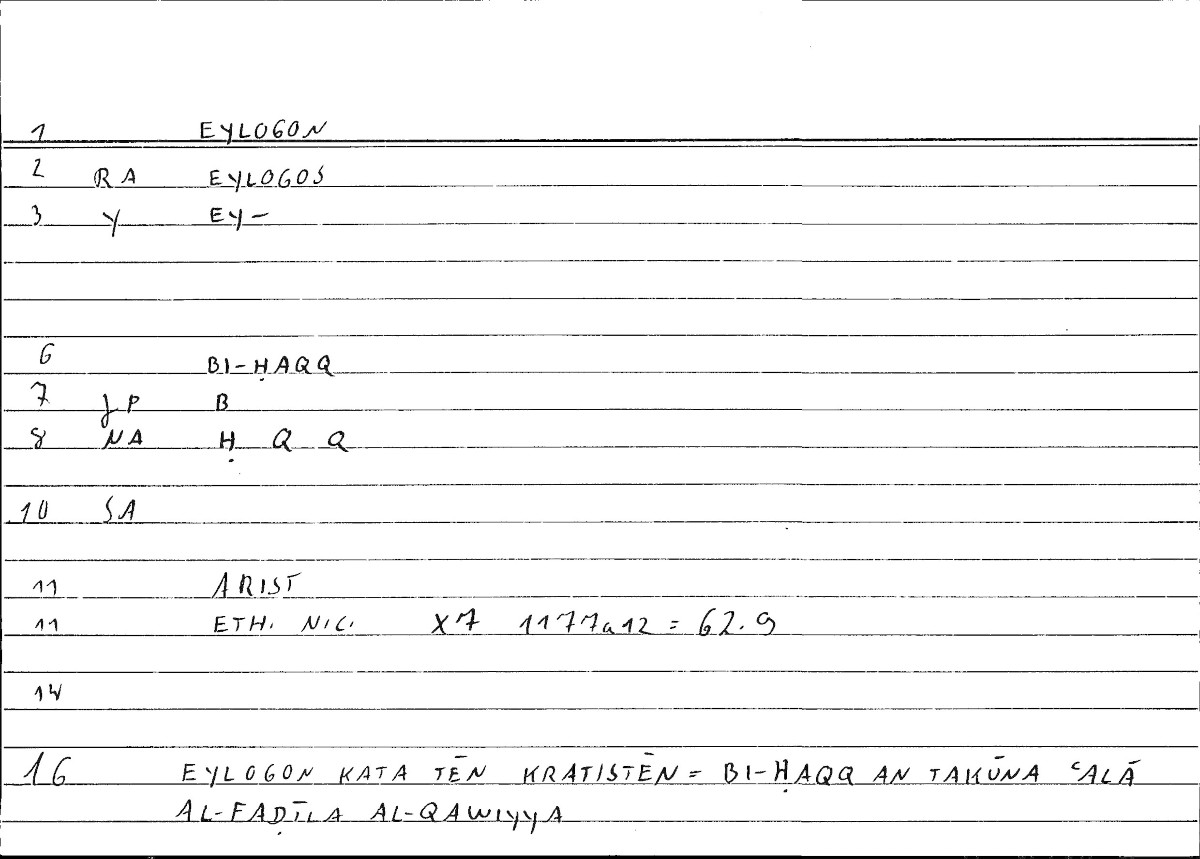 1 EYLOGON
2 RA EYLOGOS
3 Y EY-
6 BI-ḤAQQ
7 JP B
8 NA Ḥ Q Q
10 SA
11 ARIST
11 ETH. NIC. X7 1177a12 = 62.9
14
16 EYLOGON KATA TĒN KRATISTĒN = BI-ḤAQQ AN TAKŪNA ʿALĀ
AL-FAḌĪLA AL-QAWIYYA